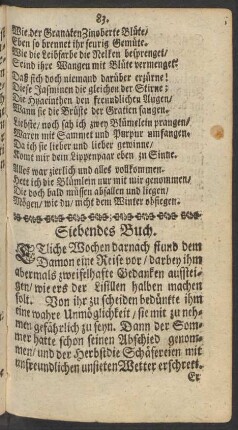 83.
Wie der Granaten Zinoberte Blüte/
Eben so brennet ihr feurig Gemüte.
Wie die Leibfarbe die Nelken besprenget/
Seind ihre Wangen mit Blüt vermenget.
Daß sich doch niemand darüber erzürne!
Diese Jasminen die gleichen der Stirne;
Die Hyacinthen den freundlichen Augen/
Wann sie die Brüste der Gratien saugen.
Liebste/ noch sah ich zwey Blümelein prangen/
Waren mit Sammet und Purpur umfangen.
Da ich sie lieber und lieber gewinne/
Komt mir dein Lippenpaar eben zu Sinne.
Alles war zierlich und alles vollkommen.
Hett ich die Blümlein nur mit mir genommen/
Die doch bald müssen abfallen und liegen/
Mögen/ wie du/ nicht dem Winter obsiegen.
Siebendes Buch.
ETliche Wochen darnach stund dem
Damon eine Reise vor/ darbey ihm
abermals zweifelhafte Gedanken aufstei-
gen/ wie ers der Lisillen halben machen
solt. Von ihr zu scheiden bedünkte ihm
eine wahre Unmöglichkeit/ sie mit zu neh-
men gefährlich zu seyn. Dann der Som-
mer hatte schon seinen Abschied genom-
men/ und der Herbst die Schäfereien mit
unfreundlichen unsteten Wetter erschrekt.
Er